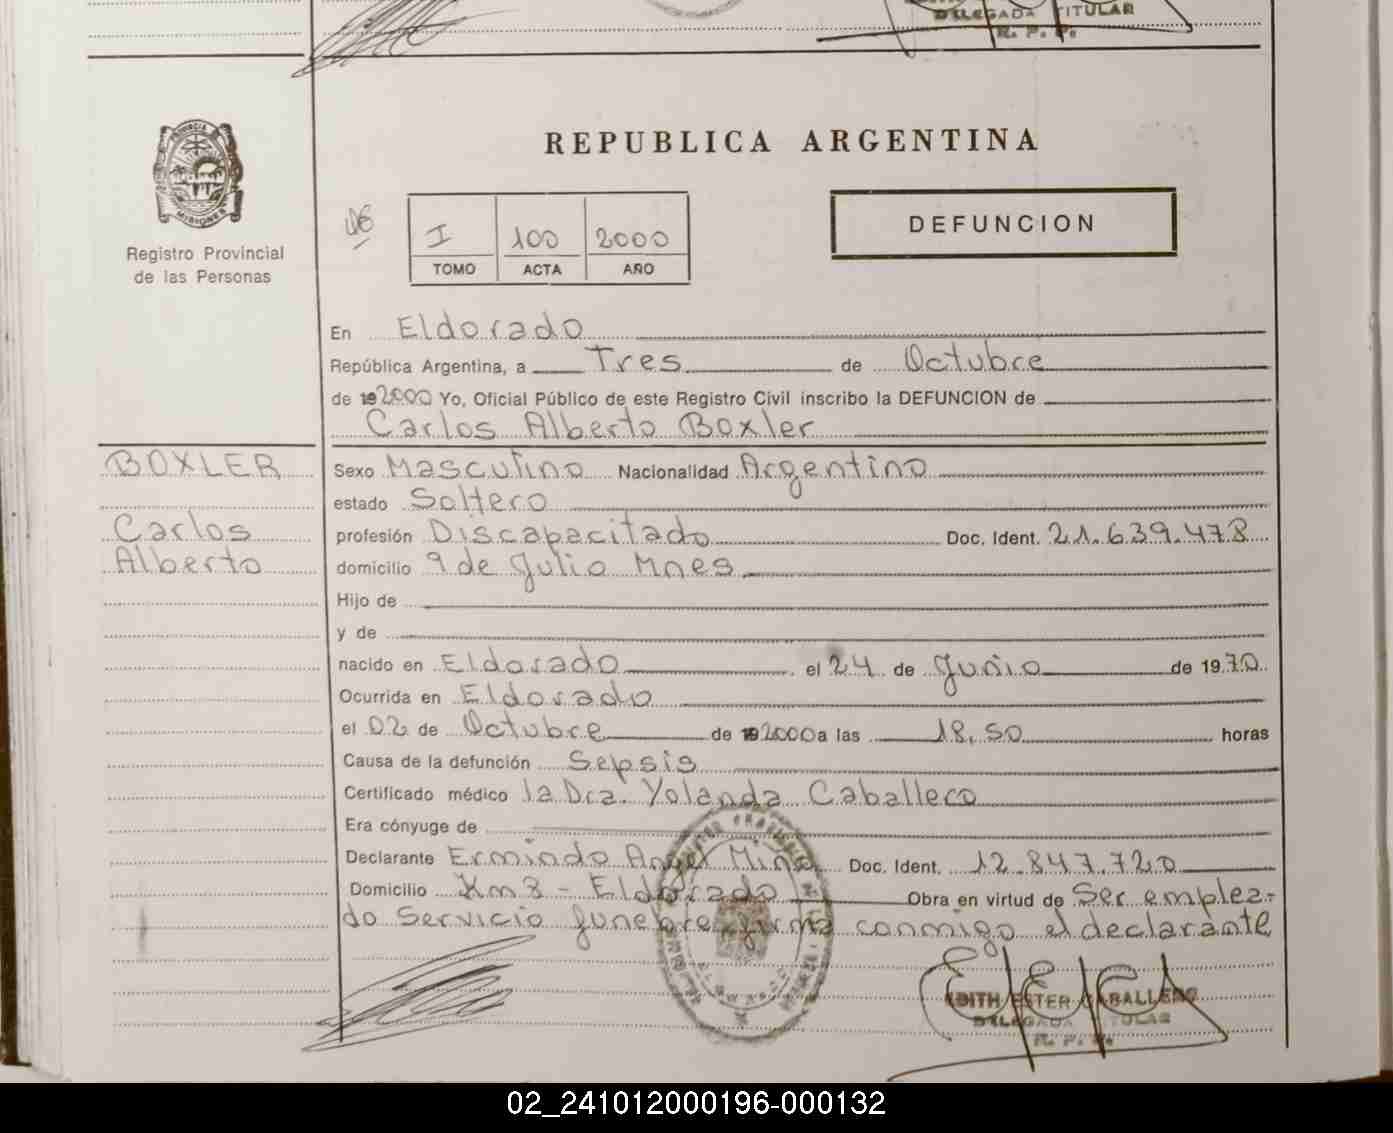 DELEGADA TITULAR
R. P. P.
PROVINCIA DE
MISIONES
Registro Provincial
de las Personas
REPUBLICA ARGENTINA
I 100 2000
TOMO ACTA AÑO
DEFUNCION
En Eldorado
República Argentina, a Tres de Octubre
de 192000 Yo, Oficial Público de este Registro Civil inscribo la DEFUNCION de
Carlos Alberto Boxler
BOXLER
Carlos
Alberto
Sexo Masculino Nacionalidad Argentino
estado Soltero
profesión Discapacitado Doc. Ident. 21.639.478
domicilio 9 de Julio Mnes
Hijo de
y de
nacido en Eldorado el 24 de Junio de 1970
Ocurrida en Eldorado
el 02 de Octubre de 192000 a las 18,50 horas
Causa de la defunción Sepsis
Certificado médico la Dra. Yolanda Caballero
Era cónyuge de
Declarante Ermindo Angel Mino Doc. Ident. 12.847.720
Domicilio Km 8 - Eldorado Obra en virtud de Ser emplea-
do Servicio funebre firma conmigo el declarante
EDITH ESTER CABALLERO
DELEGADA TITULAR
R. P. P.
02_241012000196-000132